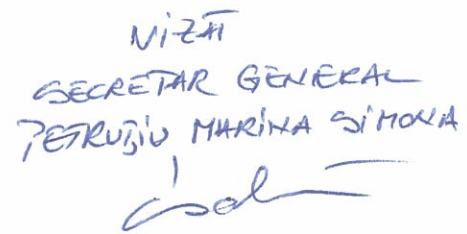 VIZAT
SECRETAR GENERAL
PETRUȚIU MARINA SIMONA